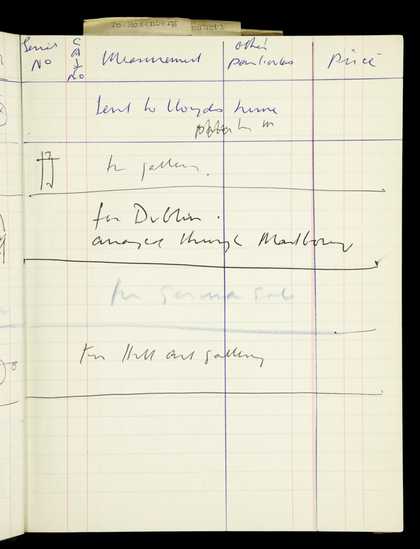 To Rosenberg
Series No CAT NO Measurement other particulars Price
Lent to Lloyds home
photo in
for gallery.
for Dublin.
arranged through Marlborough
for German sale
For Hull art gallery